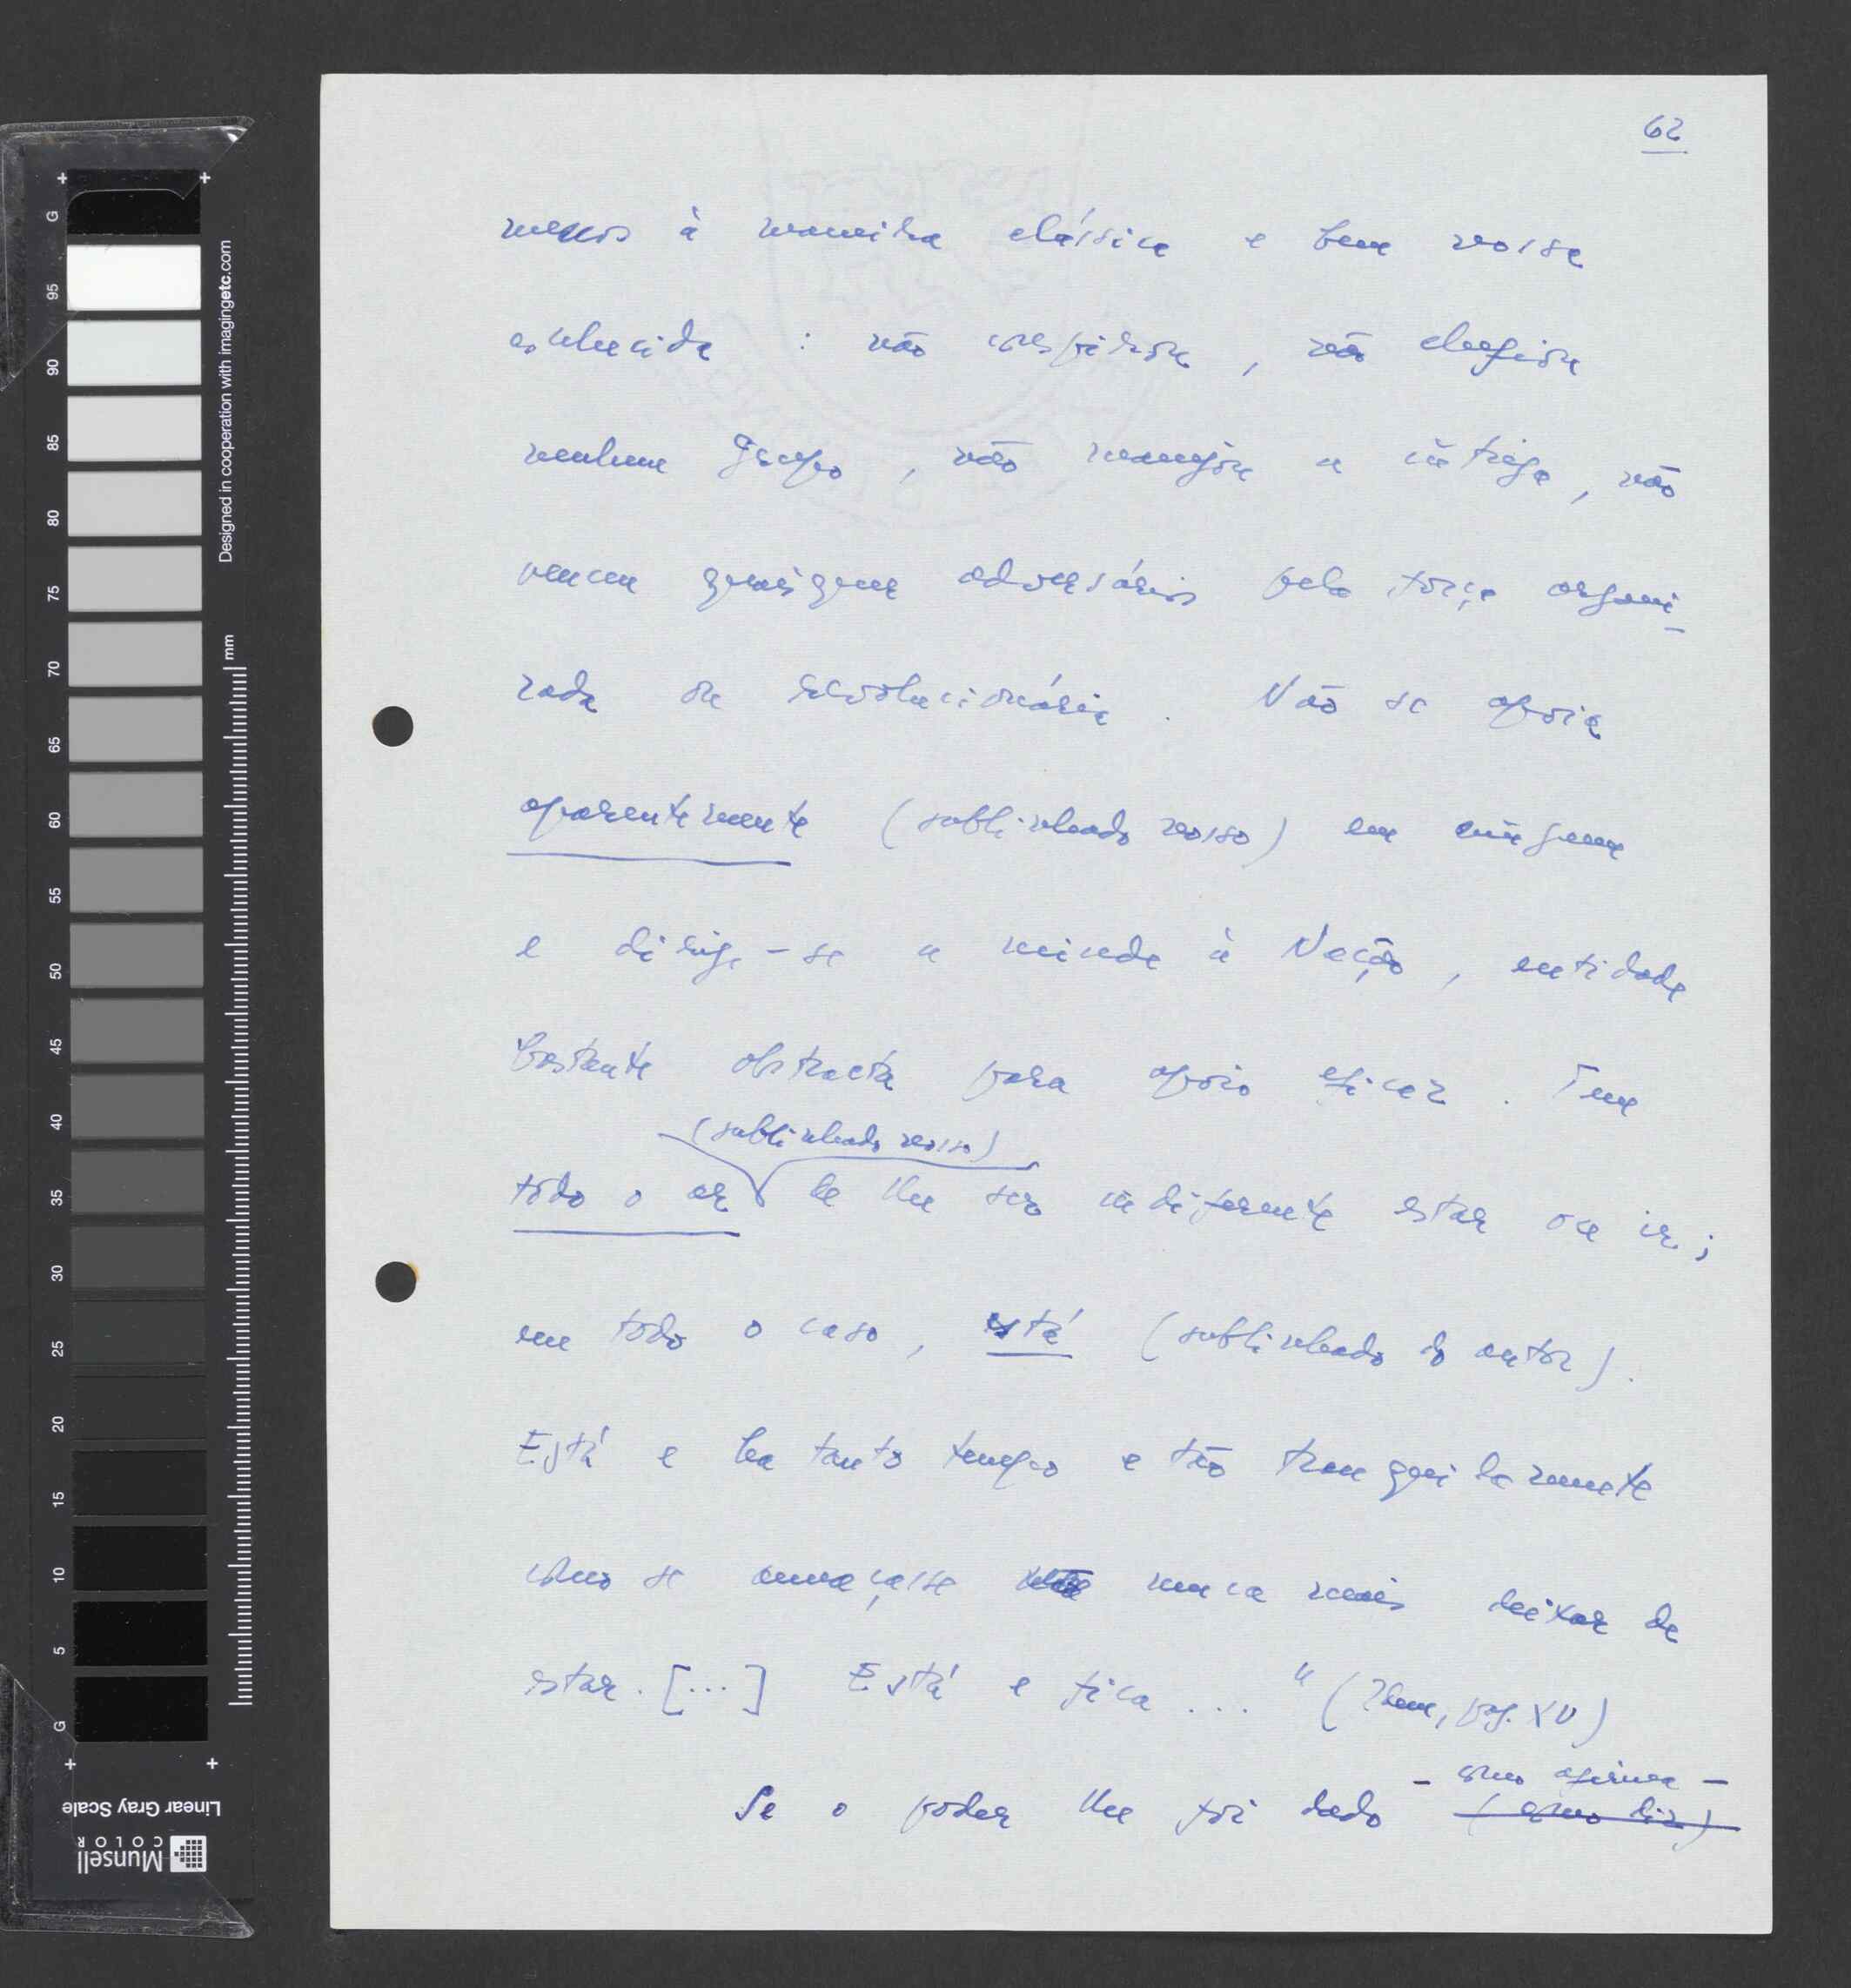 62
menos à maneira clássica e bem nossa
conhecida : não conspirou, não chefiou
nenhum grupo, não manejou a intriga, não
venceu quaisquer adversários pela força organi-
zada ou revolucionária. Não se apoia
aparentemente (sublinhado nosso) em ninguém
e dirige-se a miude à Nação, entidade
bastante abstracta para apoio eficaz. Tem
(sublinhado nosso)
todo o ar de lhe ser indiferente estar ou ir;
em todo o caso, está (sublinhado do autor).
Está e há tanto tempo e tão tranquilamente
como se ameaçasse nunca mais deixar de
estar. [...] Está e fica ..." (Idem, pág. XV)
- como afirma -
Se o poder lhe foi dado (como diz)
Designed in cooperation with imagingetc.com
mm
G
95
90
85
80
75
70
65
60
55
50
45
40
35
30
25
20
15
10
5
G
Linear Gray Scale
Munsell
COLOR